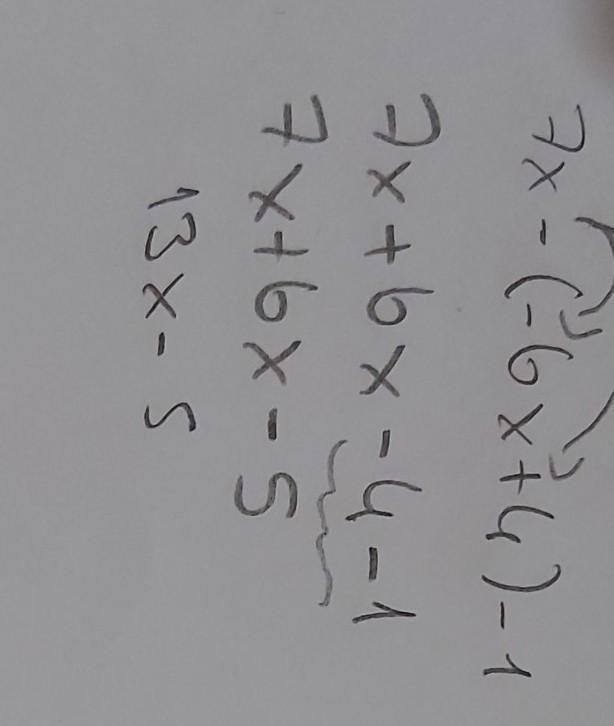 7x-(-6x+4)-1
7x+6x-4-1
7x+6x-5
13x-5